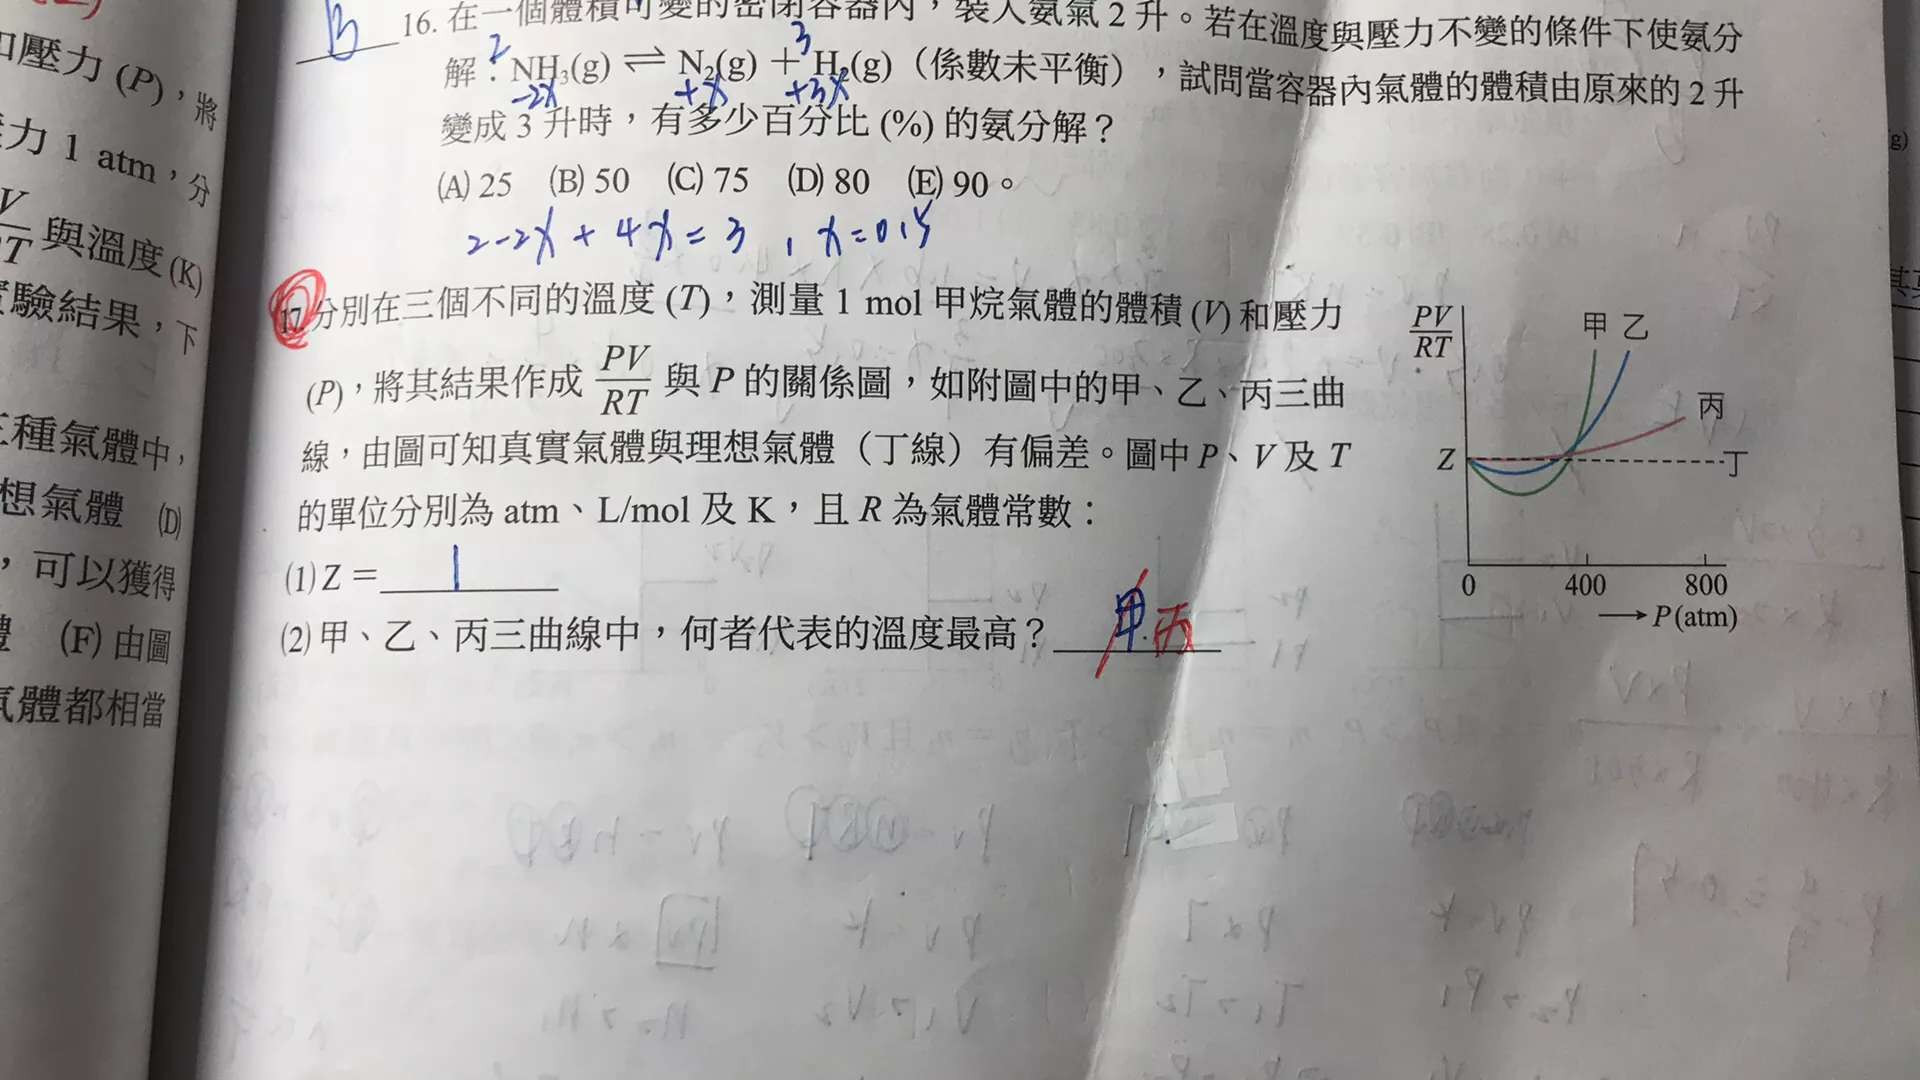 和壓力 (P)，將
力 1 atm，分
與溫度 (K)
實驗結果，下
三種氣體中，
想氣體 (D)
，可以獲得
(F) 由圖
氣體都相當
B
16. 在一個體積可變的密閉容器內，裝入氨氣 2 升。若在溫度與壓力不變的條件下使氨分
解：2NH₃(g) ⇌ N₂(g) + 3H₂(g)（係數未平衡），試問當容器內氣體的體積由原來的 2 升
-2x +x +3x
變成 3 升時，有多少百分比 (%) 的氨分解？
(A) 25 (B) 50 (C) 75 (D) 80 (E) 90。
2-2x + 4x = 3 , x=0.5
17. 分別在三個不同的溫度 (T)，測量 1 mol 甲烷氣體的體積 (V) 和壓力
(P)，將其結果作成 PV/RT 與 P 的關係圖，如附圖中的甲、乙、丙三曲
線，由圖可知真實氣體與理想氣體（丁線）有偏差。圖中 P、V 及 T
的單位分別為 atm、L/mol 及 K，且 R 為氣體常數：
(1) Z = 1
(2) 甲、乙、丙三曲線中，何者代表的溫度最高？ 甲 丙
PV/RT
甲 乙
丙
Z
丁
0 400 800
→ P(atm)